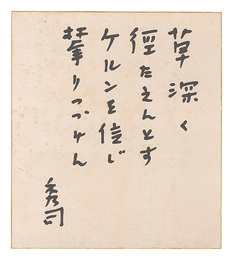 草深く
径たえんとす
ケルンを信じ
攀りつづけん
秀司